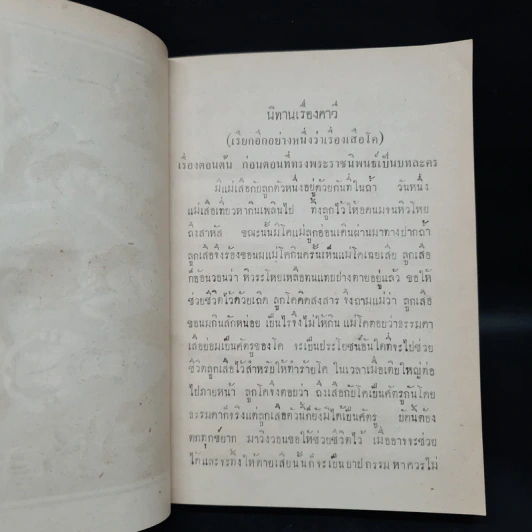 นิทานเรื่องคาวี
(เรียกอีกอย่างหนึ่งว่าเรื่องเสือโค)
เรื่องตอนต้น ก่อนตอนที่ทรงพระราชนิพนธ์เป็นบทละคร
มีแม่เสือกับลูกตัวหนึ่งอยู่ด้วยกันที่ในถ้ำ วันหนึ่ง
แม่เสือเที่ยวหากินเพลินไป ทิ้งลูกไว้ให้อดนมจนหิวโหย
ถึงสาหัส ขณะนั้นมีโคแม่ลูกอ่อนเดินผ่านมาทางปากถ้ำ
ลูกเสือจึงร้องขอนมแม่โคกินครั้นเห็นแม่โคเฉยเสีย ลูกเสือ
ก็อ้อนวอนว่า หิวระโหยเหลือทนแทบย่างตายอยู่แล้ว ขอให้
ช่วยชีวิตไว้ด้วยเถิด ลูกโคคิดสงสาร จึงถามแม่ว่า ลูกเสือ
ขอนมกินสักหน่อย เป็นไรจึงไม่ให้กิน แม่โคตอบว่าธรรมดา
เสือย่อมเป็นศัตรูของโค จะเป็นประโยชน์อันใดที่จะไปช่วย
ชีวิตลูกเสือไว้สำหรับให้ทำร้ายโค ในเวลาเมื่อเติบใหญ่ต่อ
ไปภายหน้า ลูกโคจึงตอบว่า ถึงเสือกับโคเป็นศัตรูกันโดย
ธรรมดาก็จริงแต่ลูกเสือตัวนี้ก็ยังมิได้เป็นศัตรู บัดนี้ต้อง
ตกทุกข์ยาก มาวิงวอนขอให้ช่วยชีวิตไว้ เมื่ออาจจะช่วย
ได้และจะทิ้งให้ตายเสียนั้นก็จะเป็นบาปกรรม หาควรไม่